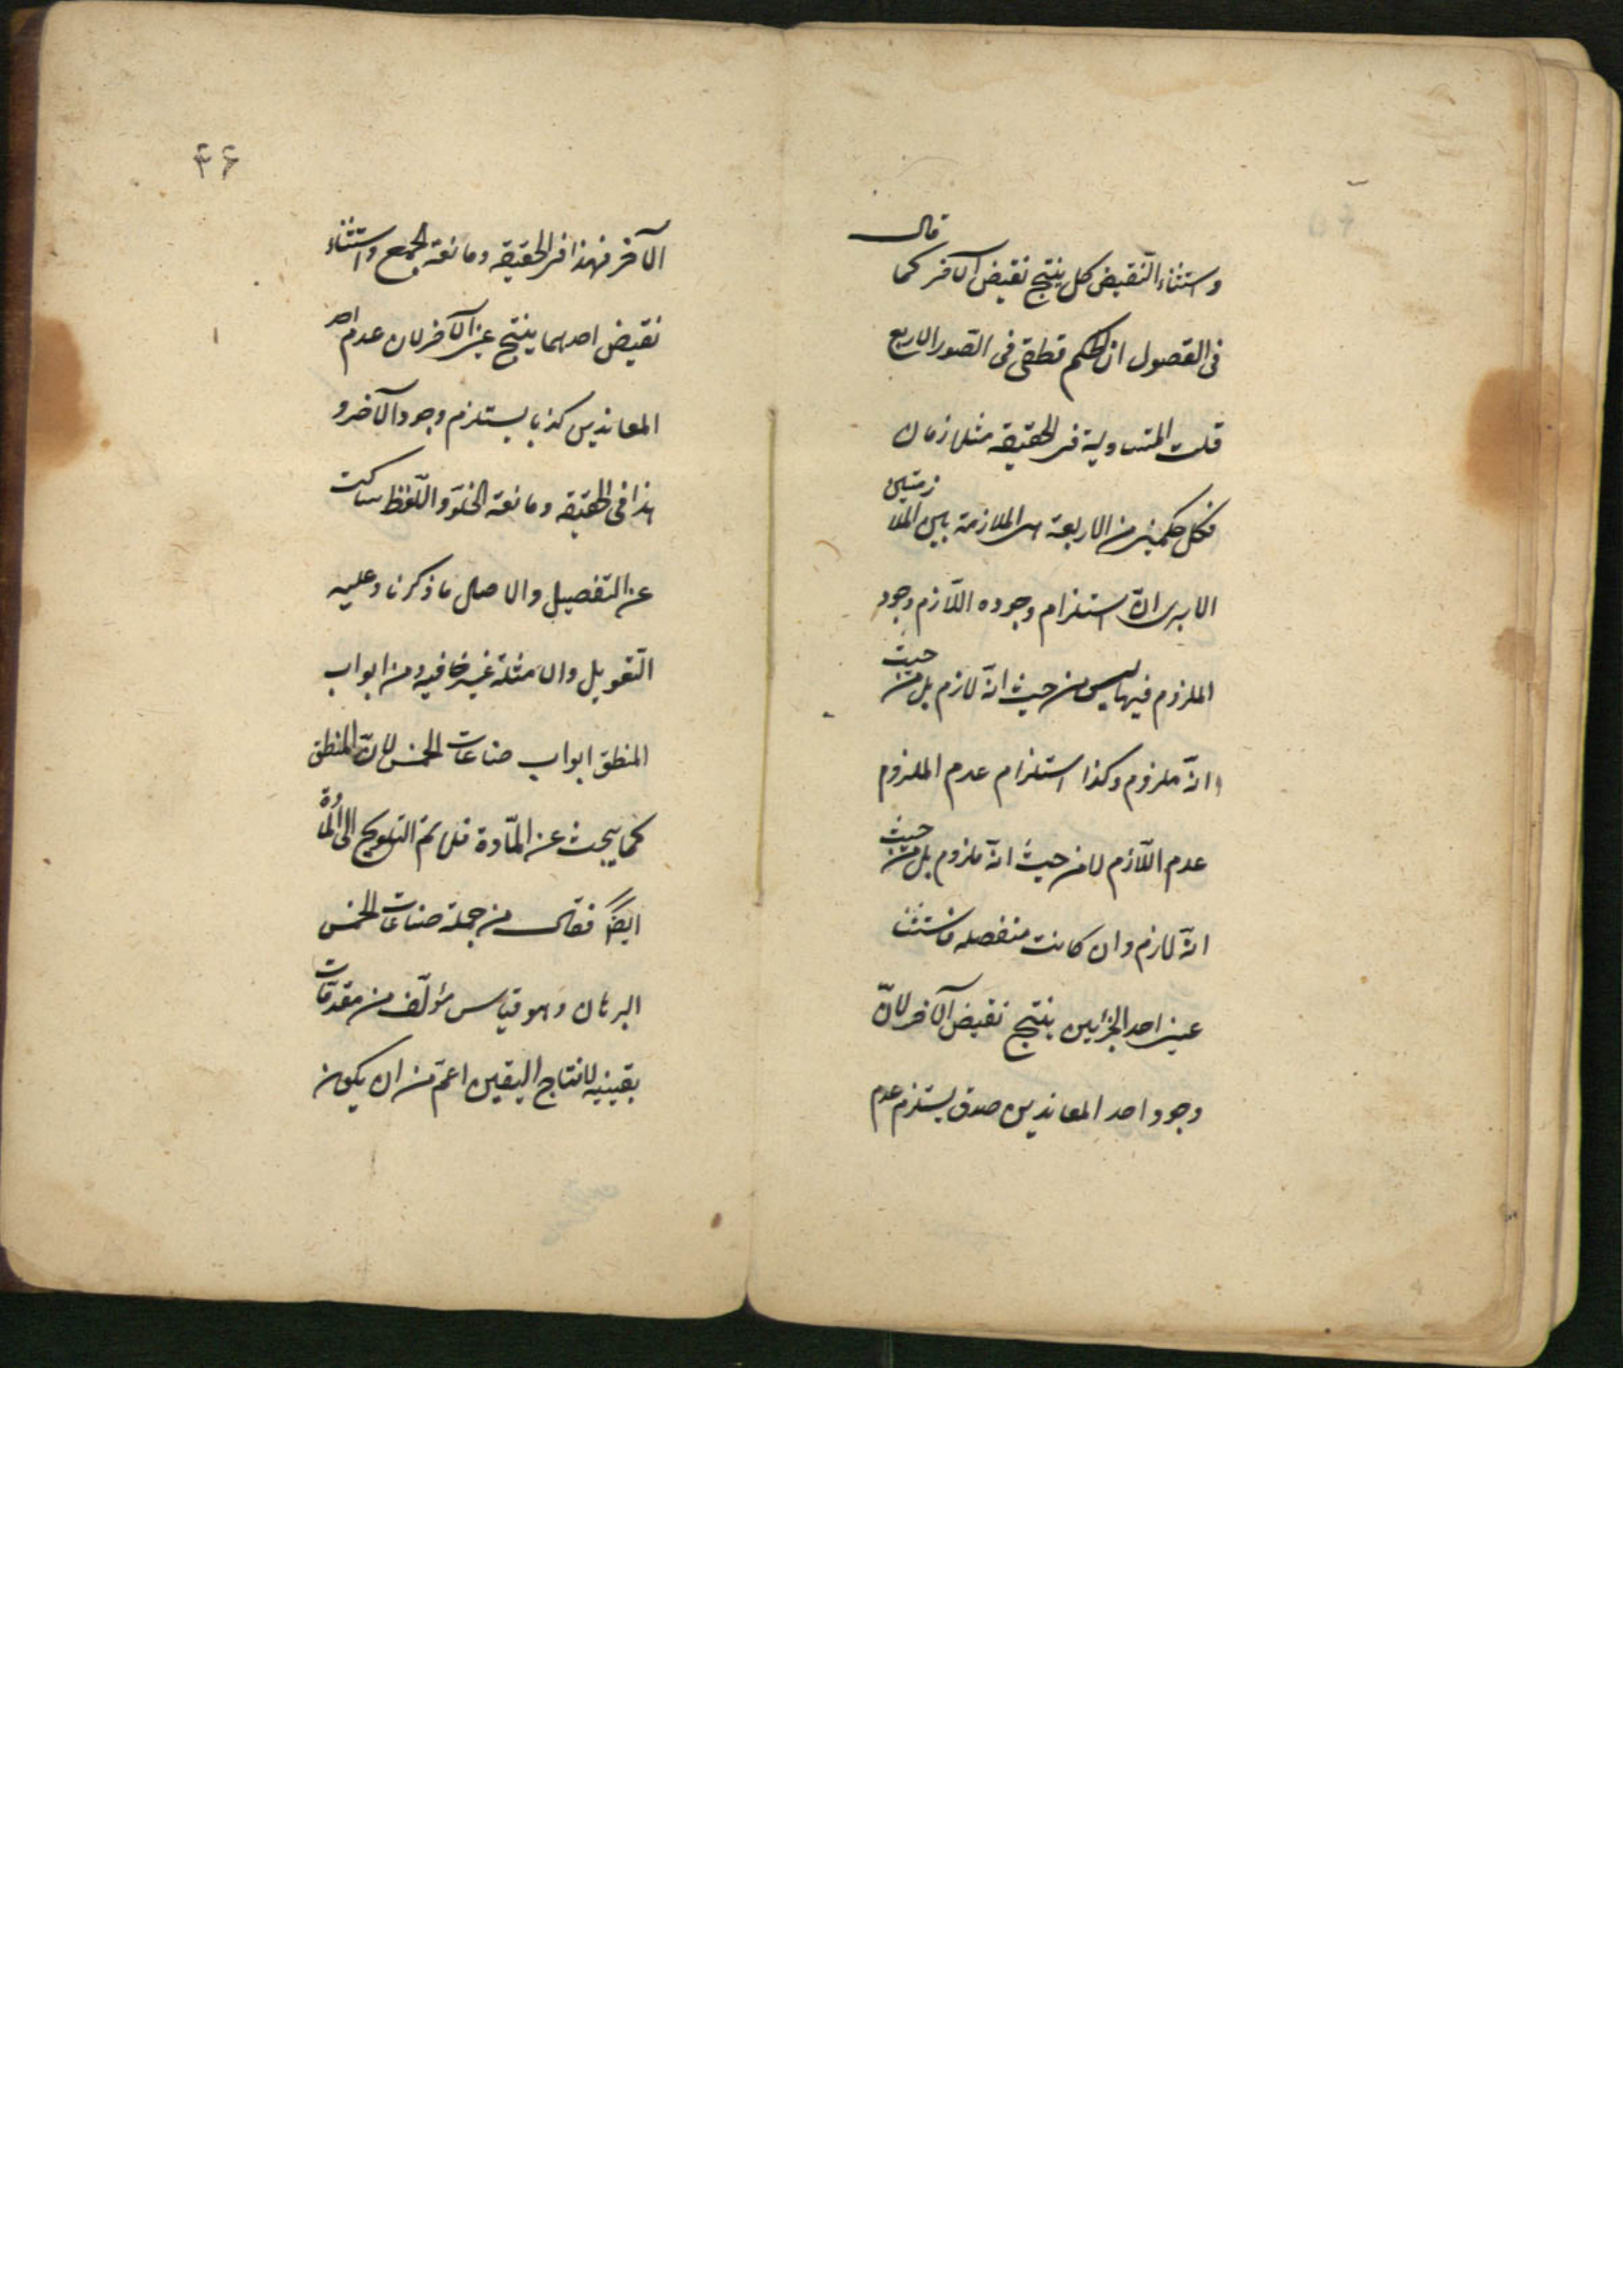 واستثناء النقيض كل ينتج نقيض الآخر كما قال
فى الفصول ان الحكم قطعى فى الصور الاربع
قلت المتساوية فى الحقيقة مثلازمان
فكل حكمين من الاربعة هى الملازمة بين الملازمتين
الا يرى ان استلزام وجوده اللازم وجود
الملزوم فيها ليس من حيث انه لازم بل من حيث
انه ملزوم وكذا استلزام عدم الملزوم
عدم اللازم لا من حيث انه ملزوم بل من حيث
انه لازم وان كانت منفصله فاستثنا
عين احد الجزئين ينتج نقيض الآخر لان
وجود احد المعاندين صدق يستلزم عدم
۴۶
الآخر فهذا فى الحقيقه ومانعة الجمع واستثناء
نقيض احدهما ينتج عين الآخر لان عدم احد
المعاندين كذبا يستلزم وجود الآخر و
هذا فى الحقيقه ومانعة الخلو واللفظ ساكت
عن التفصيل والاصل ما ذكرنا وعليه
التعويل والامثلة غير خافيه ومن ابواب
المنطق ابواب صناعات الخمس لان المنطق
كما يبحث عن المادة فلا تم التلويح الى المادة
ايضا فقال من جملة صناعات الخمس
البرهان وهو قياس مؤلف من مقدمات
يقينيه لانتاج اليقين اعم من ان يكون